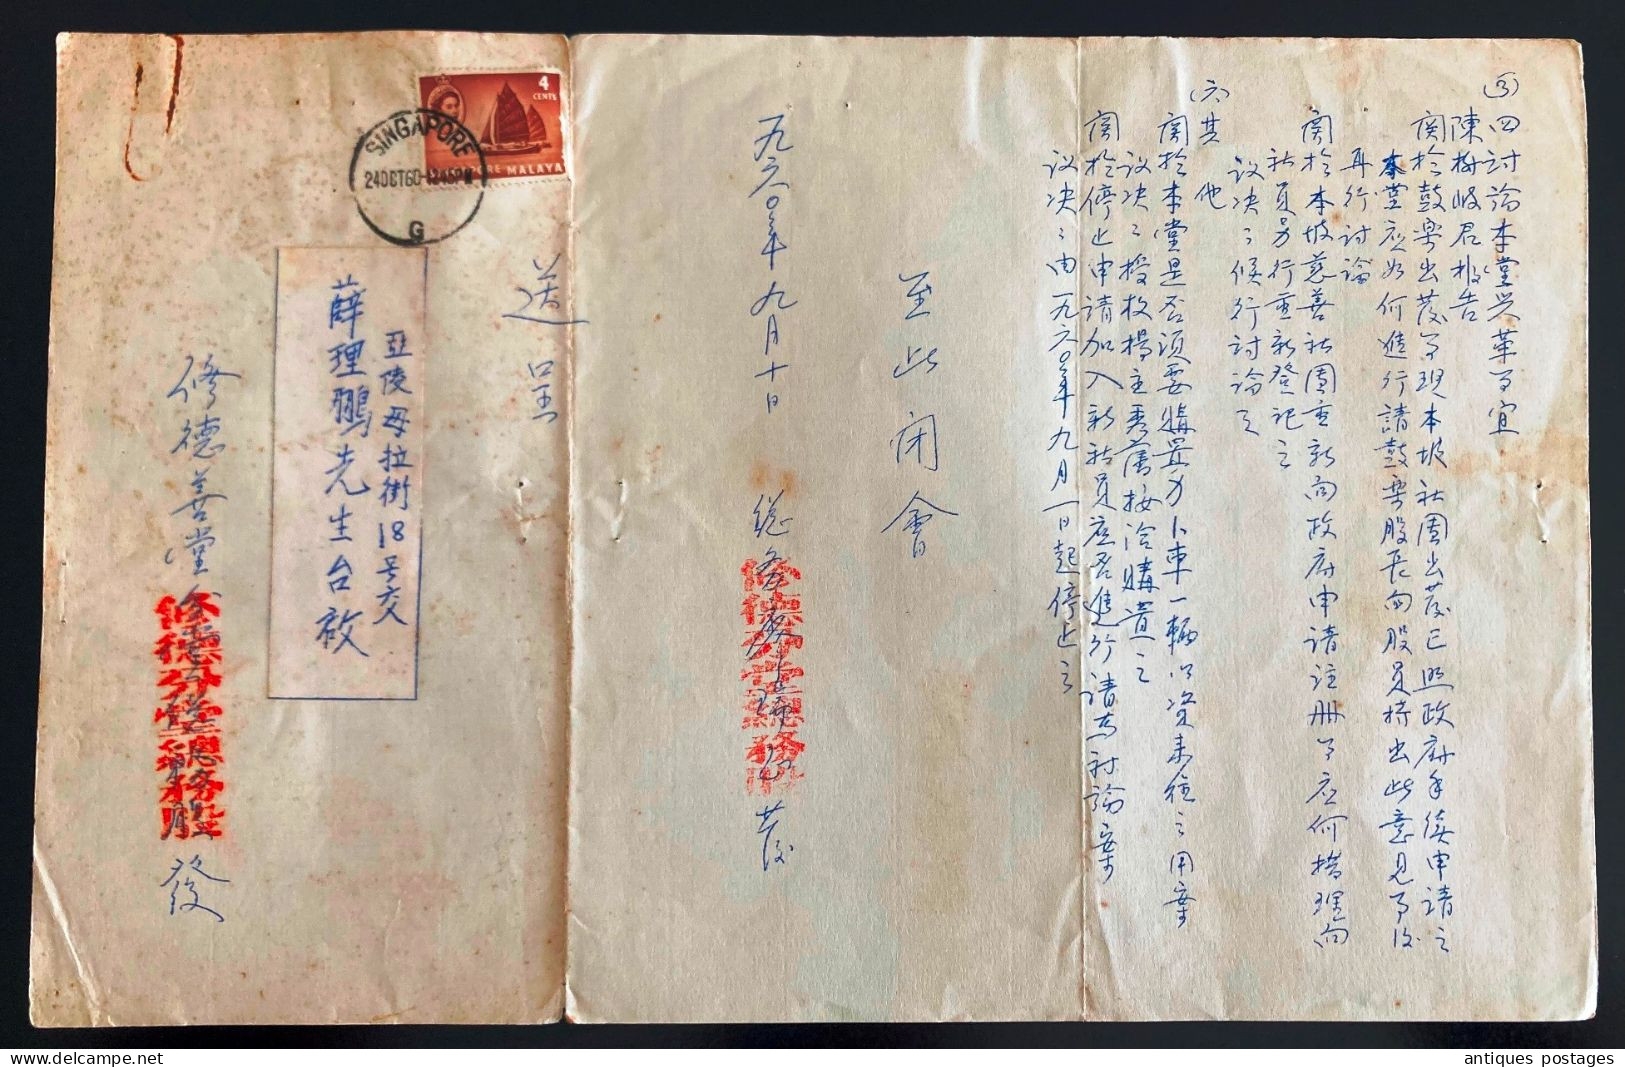 (3)四討論本堂兴革事宜
陳梅岐君报告
関於鼓乐出发事現本坡社團出发已照政府手续申請之
本堂应如何進行請鼓乐股長向股員持出此意見事後
再行討論
関於本坡慈善社團重新向政府申請注册事应何措理向
社員另行重新登记之
议决：候行討論之
(六)其他
関於本堂是否須要購置另卜車一輛以资来往之用案
议决：授权楊主秀蓬接洽購置之
関於停止申請加入新社員应否進行請為討論案
议决：由一九六〇年九月一日起停止之
至此闭會
九六〇年九月十日
总务
修德善堂總務股
发
送呈
亞陵母拉街18号交
薛理鵬先生台啟
修德善堂
修德善堂總務股
發
4
CENTS
SINGAPORE MALAYA
SINGAPORE
24OCT60-1245PM
G
antiques postages